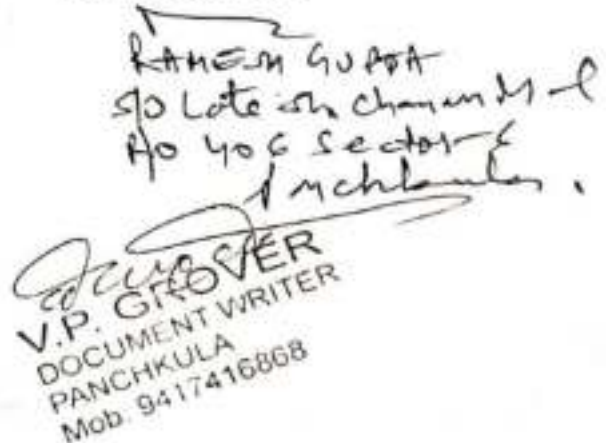 RAMESH GUPTA
S/O Late Sh. Chaman
R/O 406 Sector-6
Panchkula.
V.P. GROVER
DOCUMENT WRITER
PANCHKULA
Mob. 9417416868